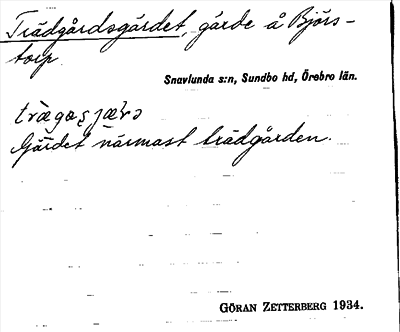 Trädgårdsgärdet, gärde å Björs-
torp.
Snavlunda s:n, Sundbo hd, Örebro län.
Gärdet närmast trädgården.
GÖRAN ZETTERBERG 1934.